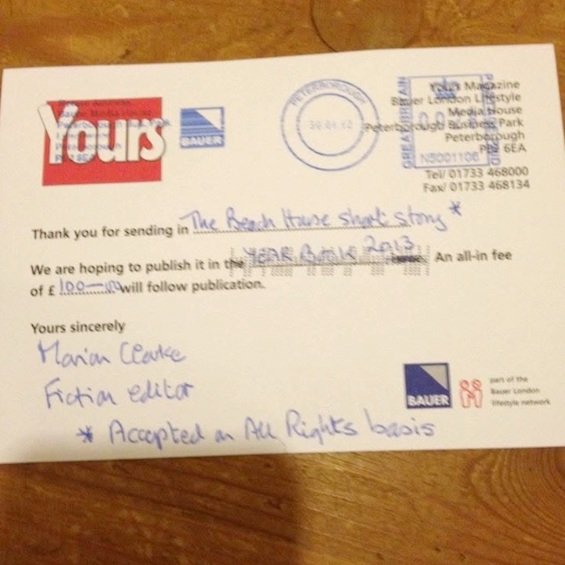 Yours
BAUER
PETERBOROUGH
GREAT BRITAIN
N5001106
Yours Magazine
Bauer London Lifestyle
Media House
Peterborough Business Park
Peterborough
PE2 6EA
Tel/ 01733 468000
Fax/ 01733 468134
Thank you for sending in The Beach House short story *
We are hoping to publish it in the YEAR BOOK 2013. An all-in fee
of £ 100—00 will follow publication.
Yours sincerely
Marion Clarke
Fiction editor
* Accepted on All Rights basis
BAUER
part of the
Bauer London
lifestyle network